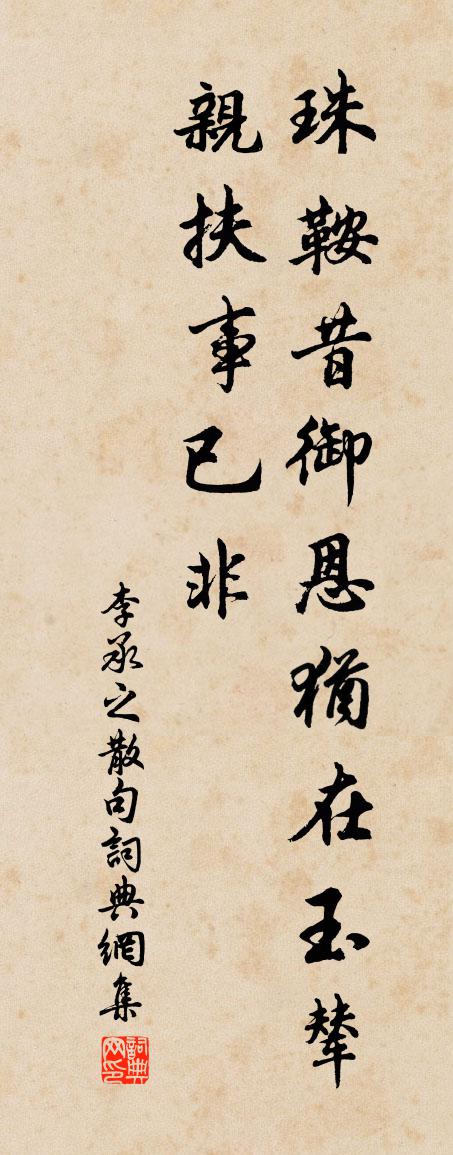 珠鞍昔御恩猶在玉輦
親扶事已非
李承之散句詞典網集
詞典网印